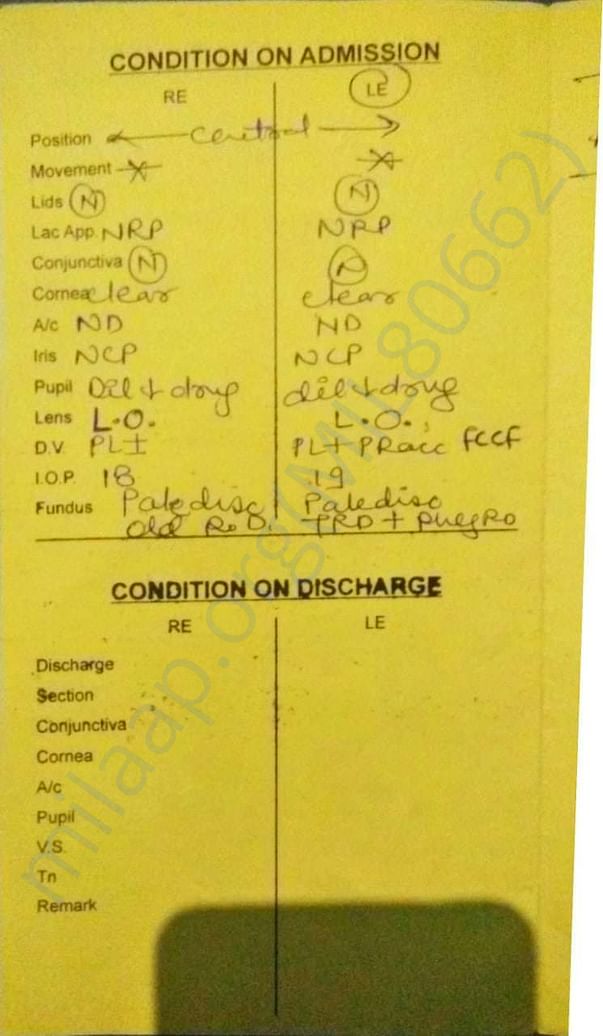 CONDITION ON ADMISSION
RE LE
Position central
Movement
Lids N N
Lac App. NRP NRP
Conjunctiva N N
Cornea clear clear
A/c ND ND
Iris NCP NCP
Pupil Dil + drug dil + drug
Lens L.O. L.O.
D.V PL± PL+ PRacc FCCF
I.O.P. 18 19
Fundus Pale disc Pale disc
Old RD TRD +
CONDITION ON DISCHARGE
RE LE
Discharge
Section
Conjunctiva
Cornea
A/c
Pupil
V.S.
Tn
Remark
milaap.org(MIL80662)